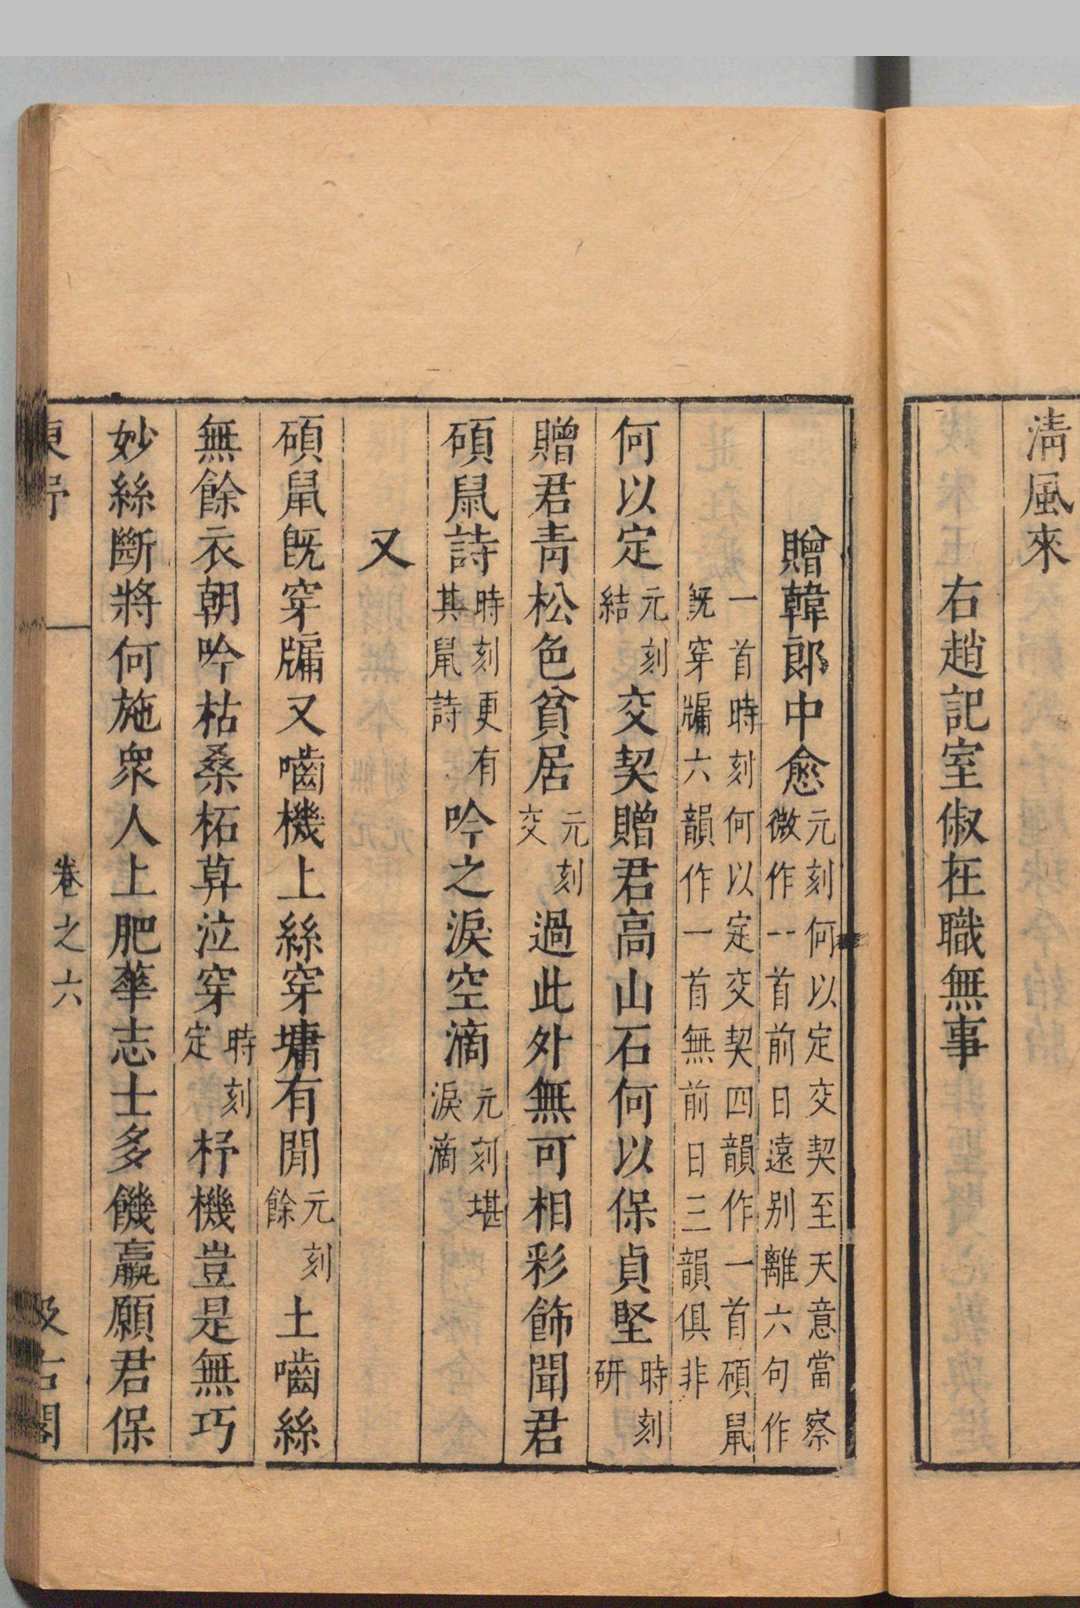 清風來
右趙記室俶在職無事
贈韓郎中愈元刻何以定交契至天意當察
微作一首前日遠別離六句作
一首時刻何以定交契四韻作一首碩鼠
既穿牖六韻作一首無前日三韻俱非
何以定元刻結交契贈君高山石何以保貞堅時刻研
贈君青松色貧居元刻交過此外無可相彩飾聞君
碩鼠詩時刻更有其鼠詩吟之淚空滴元刻堪淚滴
又
碩鼠既穿牖又嚙機上絲穿墉有閒元刻餘土嚙絲
無餘衣朝吟枯桑柘莫泣穿時刻定杼機豈是無巧
妙絲斷將何施衆人上肥華志士多饑羸願君保
東野
卷之六
汲古閣